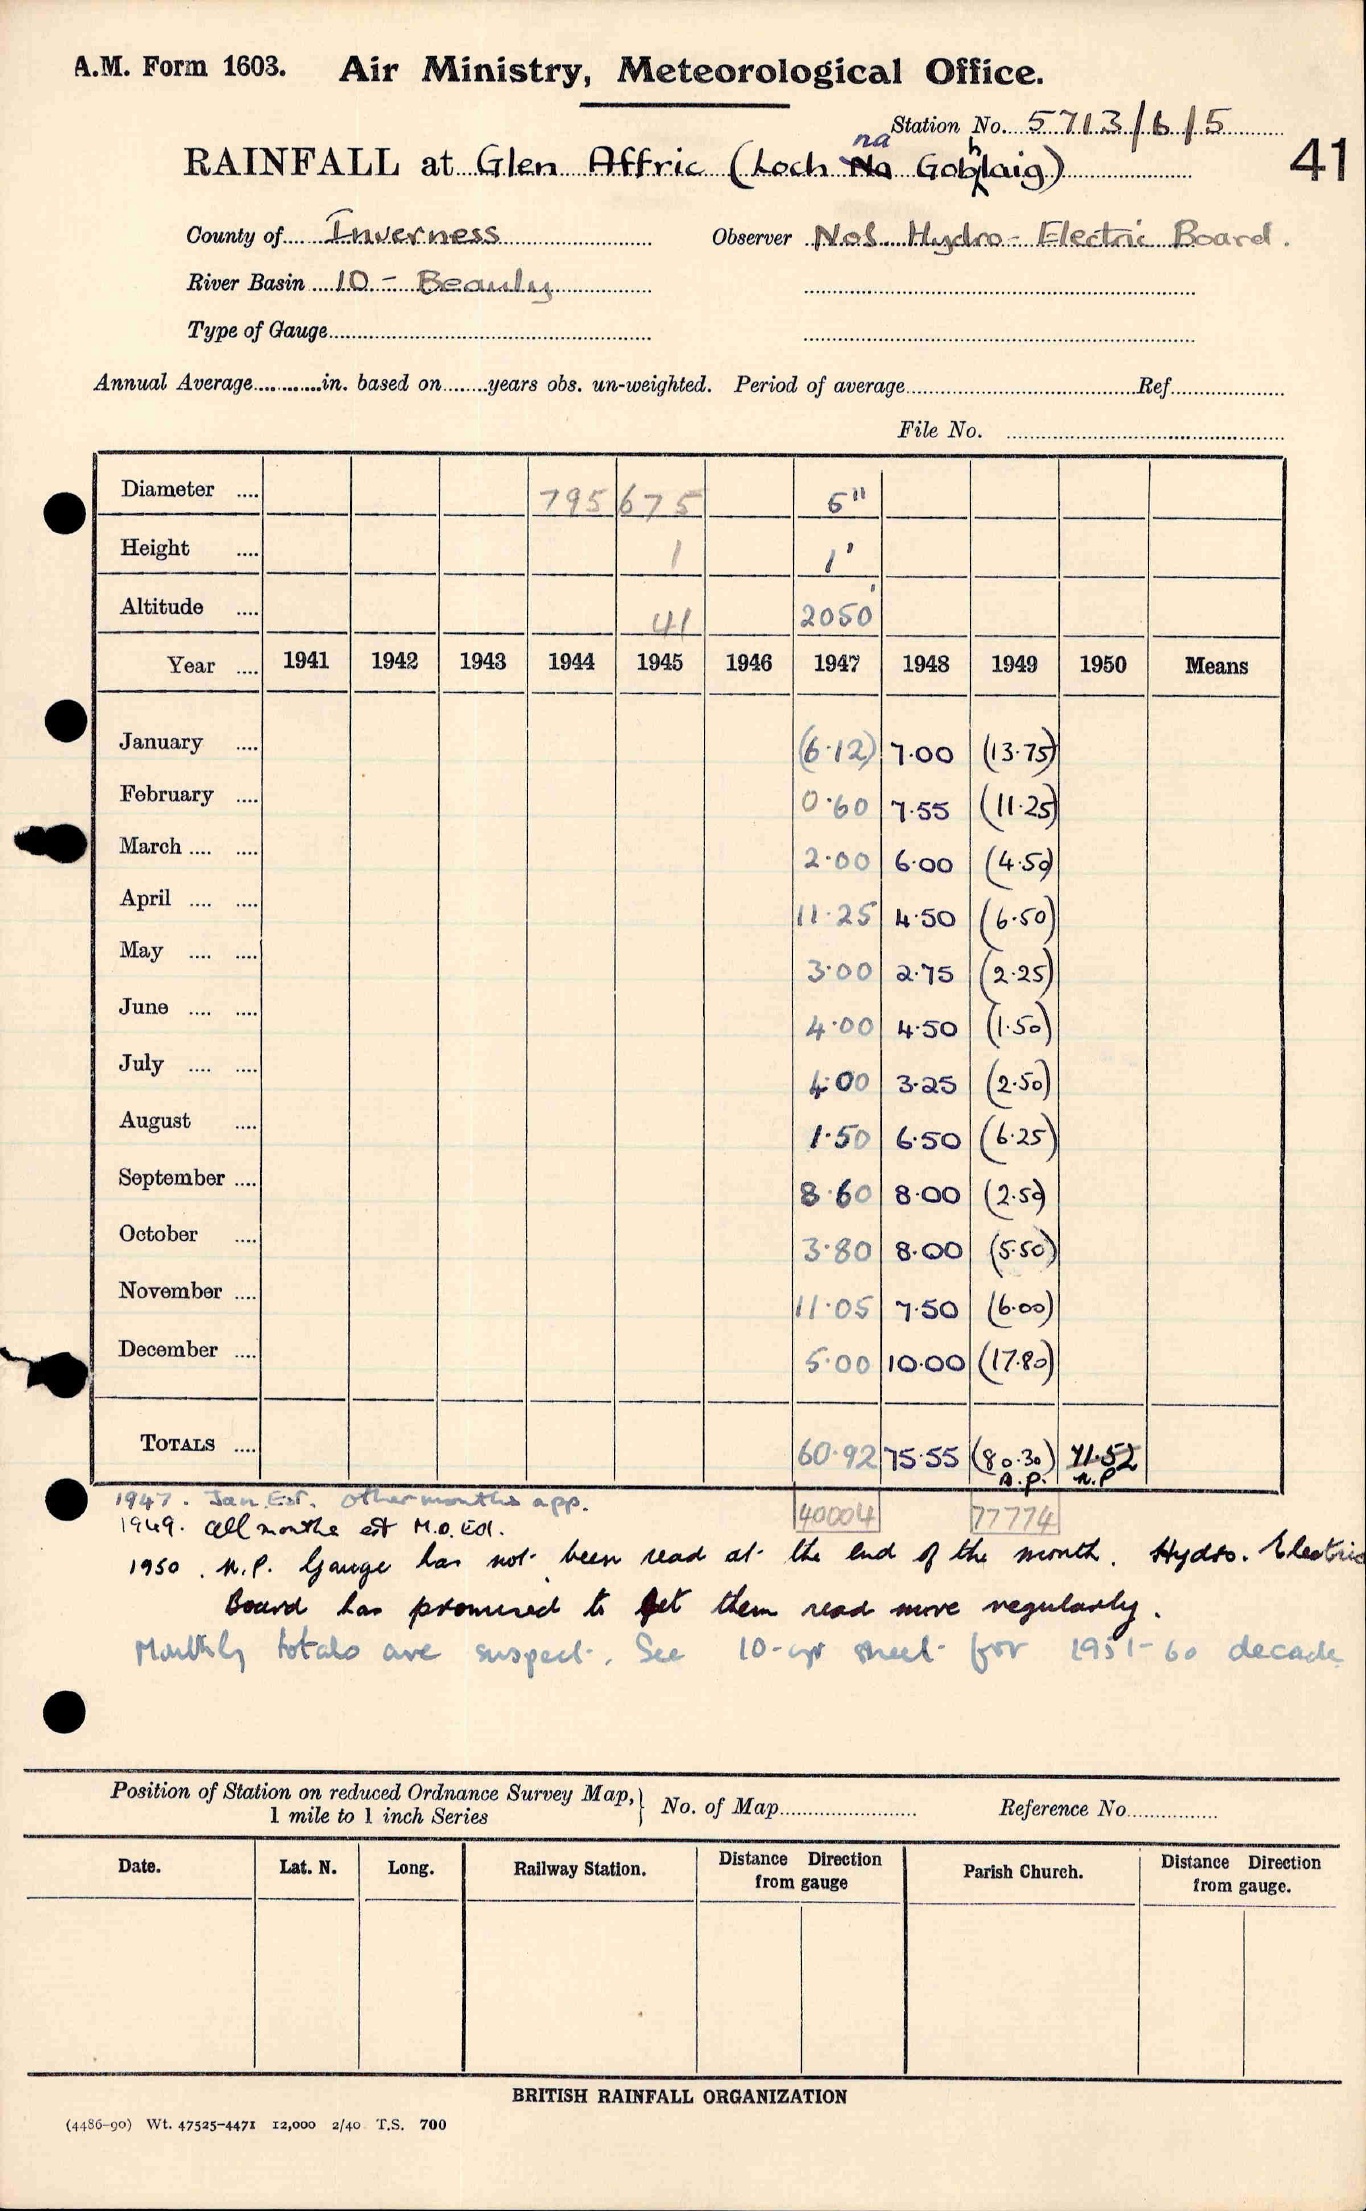 A.M. Form 1603. Air Ministry, Meteorological Office.
Station No. 5713/6/5
41
na h
RAINFALL at Glen Affric (Loch Na Goblaig)
County of Inverness Observer No S. Hydro-Electric Board.
River Basin 10 - Beauly
Type of Gauge
Annual Average in. based on years obs. un-weighted. Period of average Ref.
File No.
Diameter 795 675 5"
Height 1 1'
Altitude 41 2050'
Year 1941 1942 1943 1944 1945 1946 1947 1948 1949 1950 Means
January (6·12) 7·00 (13·75)
February 0·60 7·55 (11·25)
March 2·00 6·00 (4·50)
April 11·25 4·50 (6·50)
May 3·00 2·75 (2·25)
June 4·00 4·50 (1·50)
July 4·00 3·25 (2·50)
August 1·50 6·50 (6·25)
September 8·60 8·00 (2·50)
October 3·80 8·00 (5·50)
November 11·05 7·50 (6·00)
December 5·00 10·00 (17·80)
TOTALS 60·92 75·55 (80·30) 71·52
n.p. N.P
1947. Jan Est. other months app. 40004 77774
1949. all months est M.O. Ed.
1950. N.P. Gauge has not been read at the end of the month. Hydro. Electric
Board has promised to get them read more regularly.
Monthly totals are suspect. See 10-yr sheet for 1951-60 decade
Position of Station on reduced Ordnance Survey Map, } No. of Map Reference No.
1 mile to 1 inch Series
Date. Lat. N. Long. Railway Station. Distance Direction from gauge Parish Church. Distance Direction from gauge.
BRITISH RAINFALL ORGANIZATION
(4486-90) Wt. 47525-4471 12,000 2/40 T.S. 700